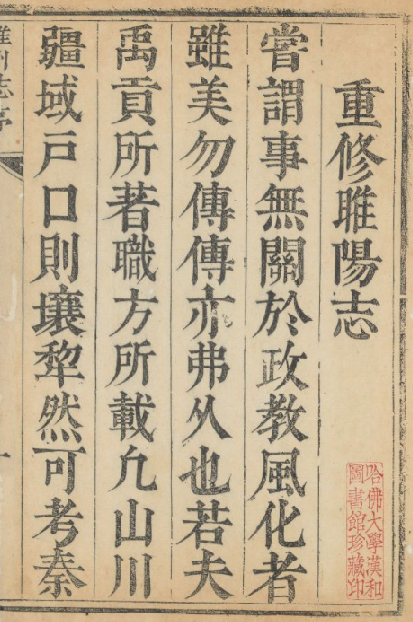 重修睢陽志
嘗謂事無關於政教風化者
雖美勿傳傳亦弗乆也若夫
禹貢所著職方所載凢山川
疆域戸口則壤犂然可考秦
志序
哈佛大學漢和
圖書館珍藏印